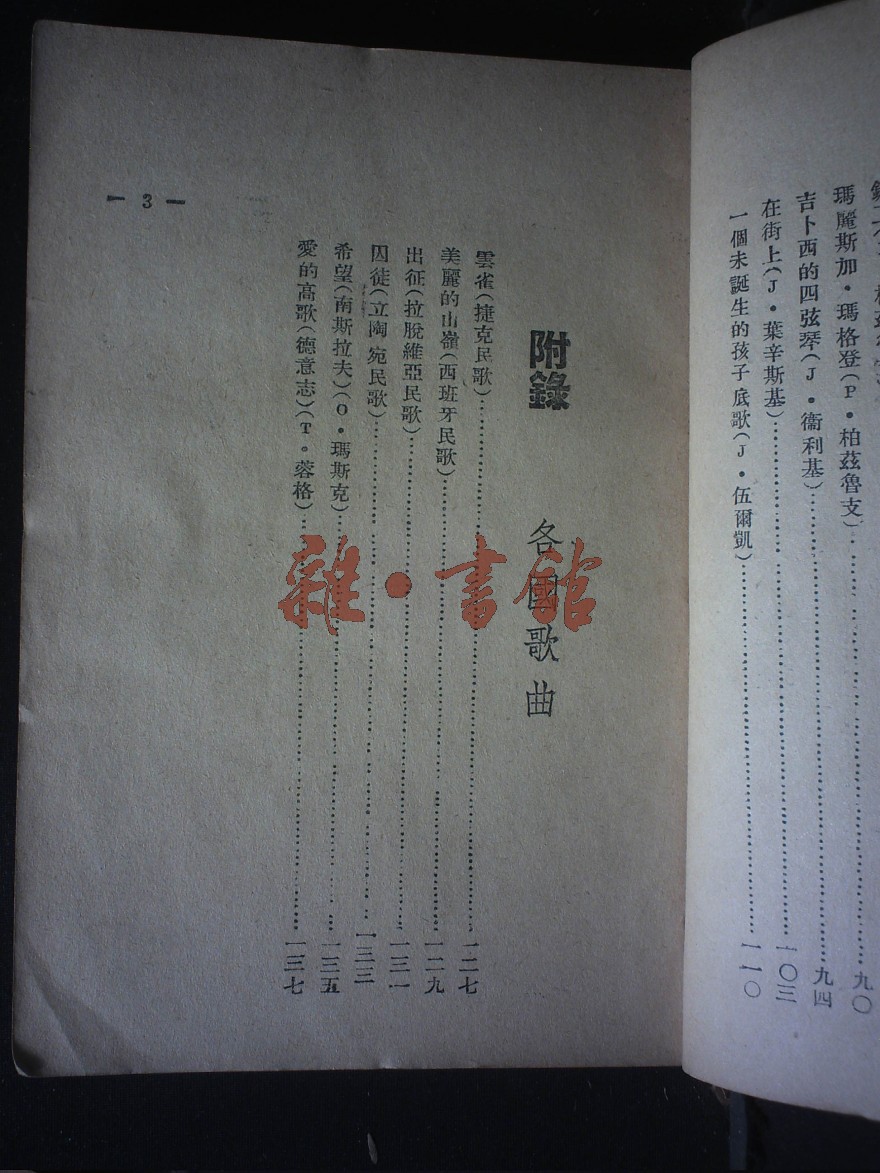 瑪麗斯加・瑪格登(P・柏茲魯支)……九〇
吉卜西的四弦琴(J・衞利基)……九四
在街上(J・葉辛斯基)……一〇三
一個未誕生的孩子底歌(J・伍爾凱)……一一〇
附錄 各國歌曲
雲雀(捷克民歌)……一二七
美麗的山嶺(西班牙民歌)……一二九
出征(拉脫維亞民歌)……一三一
囚徒(立陶宛民歌)……一三三
希望(南斯拉夫)(O・瑪斯克)……一三五
愛的高歌(德意志)(T。蓉格)……一三七
— 3 —
雜・書館